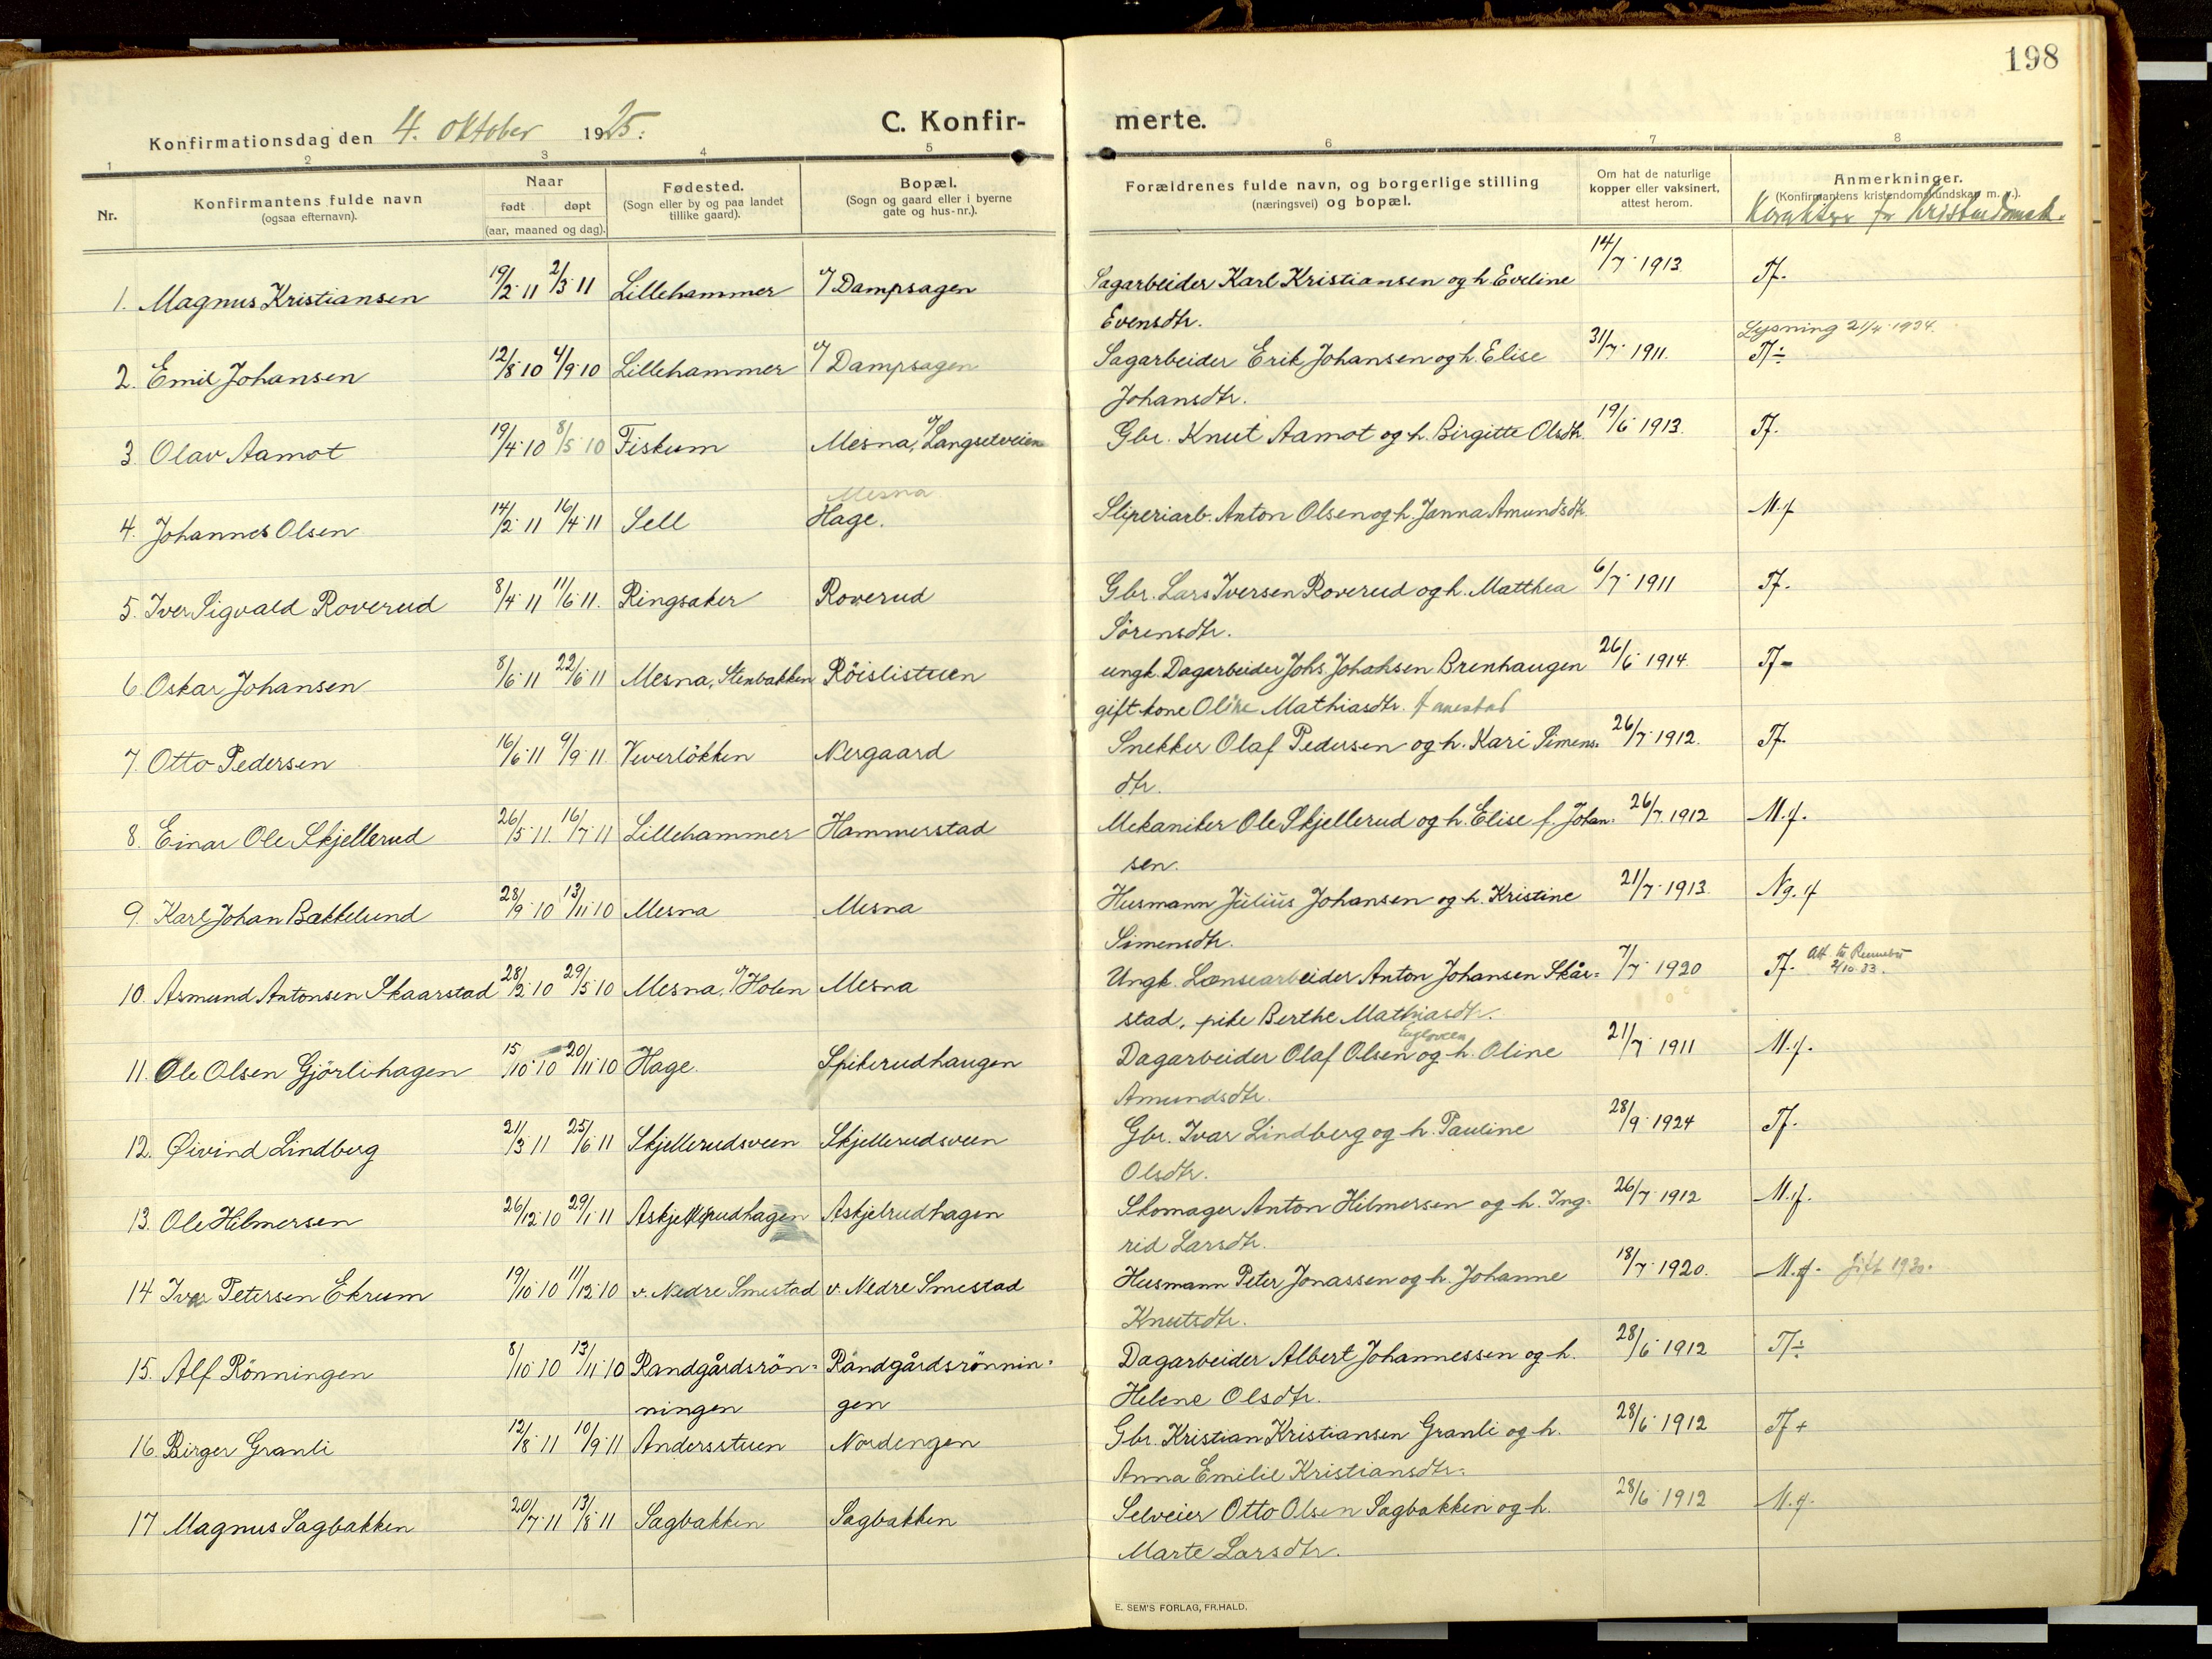 198
Konfirmationsdag den 4. oktober 1925. C. Konfir- merte.
1 2 3 4 5 6 7 8
Nr. Konfirmantens fulde navn (ogsaa efternavn). Naar født døpt (aar, maaned og dag). Fødested. (Sogn eller by og paa landet tillike gaard). Bopæl. (Sogn og gaard eller i byerne gate og hus-nr.). Forældrenes fulde navn, og borgerlige stilling (næringsvei) og bopæl. Om hat de naturlige kopper eller vaksinert, attest herom. Anmerkninger. (Konfirmantens kristendomskundskap m. v.).
1. Magnus Kristiansen 19/2 11 2/3 11 Lillehammer v/ Dampsagen Sagarbeider Karl Kristiansen og h. Eveline 14/7 1913. Tf.
Evensdtr.
Lysning 21/4 1934.
2. Emil Johansen 12/8 10 4/9 10 Lillehammer v/ Dampsagen Sagarbeider Erik Johansen og h. Elise 31/7 1911. Tf÷
Johansdtr.
3 Olav Aamot 19/4 10 8/5 10 Fiskum Mesna, v/ Langsetveien Gbr. Knut Aamot og h. Birgitte Olsdtr. 19/6 1913. Tf.
Mesna
4. Johannes Olsen 14/2 11 16/4 11 Sell Hage. Sliperiarb. Anton Olsen og h. Janna Amundsdtr. M.f
5. Iver Sigvald Roverud 8/4 11 11/6 11. Ringsaker Roverud Gbr. Lars Iversen Roverud og h. Matthea 6/7 1911 Tf.
Sörensdtr.
6 Oskar Johansen 8/6 11 22/6 11 Mesna, Stenbakken Röislistuen ungk. Dagarbeider Johs. Johansen Brenhaugen 26/6 1914. Tf-
gift kone Oline Mathiasdtr.
7. Otto Pedersen 16/6 11 9/9 11. Veverlökken Nergaard Snekker Olaf Pedersen og h. Kari Simens- 26/7 1912. Tf.
dtr.
8. Einar Ole Skjellerud 26/5 11. 16/7 11 Lillehammer Hammerstad Mekaniker Ole Skjellerud og h. Elise f. Johan- 26/7 1912 M.f.
sen.
9. Karl Johan Bakkelund 28/9 10 13/11 10 Mesna Mesna Husmann Julius Johansen og h. Kristine 21/7 1913. Ng. f
Simensdtr.
10. Asmund Antonsen Skaarstad 28/2 10 29/5 10 Mesna, v/ Holen Mesna Ungk. Lænsearbeider Anton Johansen Skår- 7/7 1920 Tf. Att. til 2/10 33.
stad, pike Berthe Mathiasdtr.
11. Ole Olsen Gjörlihagen 15/10 10 20/11 10 Hage. Spikerudhaugen Dagarbeider Olaf Olsen og h. Oline 21/7 1911 M.f.
Amundsdtr.
12. Øivind Lindberg 21/3 11 25/6 11 Skjellerudsveen Skjellerudsveen Gbr. Ivar Lindberg og h. Pauline 28/9 1924 Tf.
Olsdtr.
13. Ole Hilmersen 26/12 10 29/1 11 Askjelsrudhagen Askjelrudhagen Skomager Anton Hilmersen og h. Ing- 26/7 1912 M.f.
rid Larsdtr.
14 Ivar Petersen Ekrum 19/10 10 11/12 10 v. Nedre Smestad v. Nedre Smestad Husmann Peter Jonassen og h. Johanne 18/7 1920. M.f. Gift 1930.
Knutsdtr.
15. Alf Rönningen 8/10 10 13/11 10 Randgårdsrön- Randgårdsrönnin- Dagarbeider Albert Johannessen og h. 28/6 1912 Tf÷
ningen gen Helene Olsdtr.
16. Birger Granli 12/8 11 10/9 11 Andersstuen Nordengen Gbr. Kristian Kristiansen Granli og h. 28/6 1912 Tf+
Anna Emilie Kristiansdtr.
17 Magnus Sagbakken 20/7 11 13/8 11 Sagbakken Sagbakken Selveier Otto Olsen Sagbakken og h. 28/6 1912 M.f.
Marte Larsdtr.
E. SEM'S FORLAG, FR.HALD.